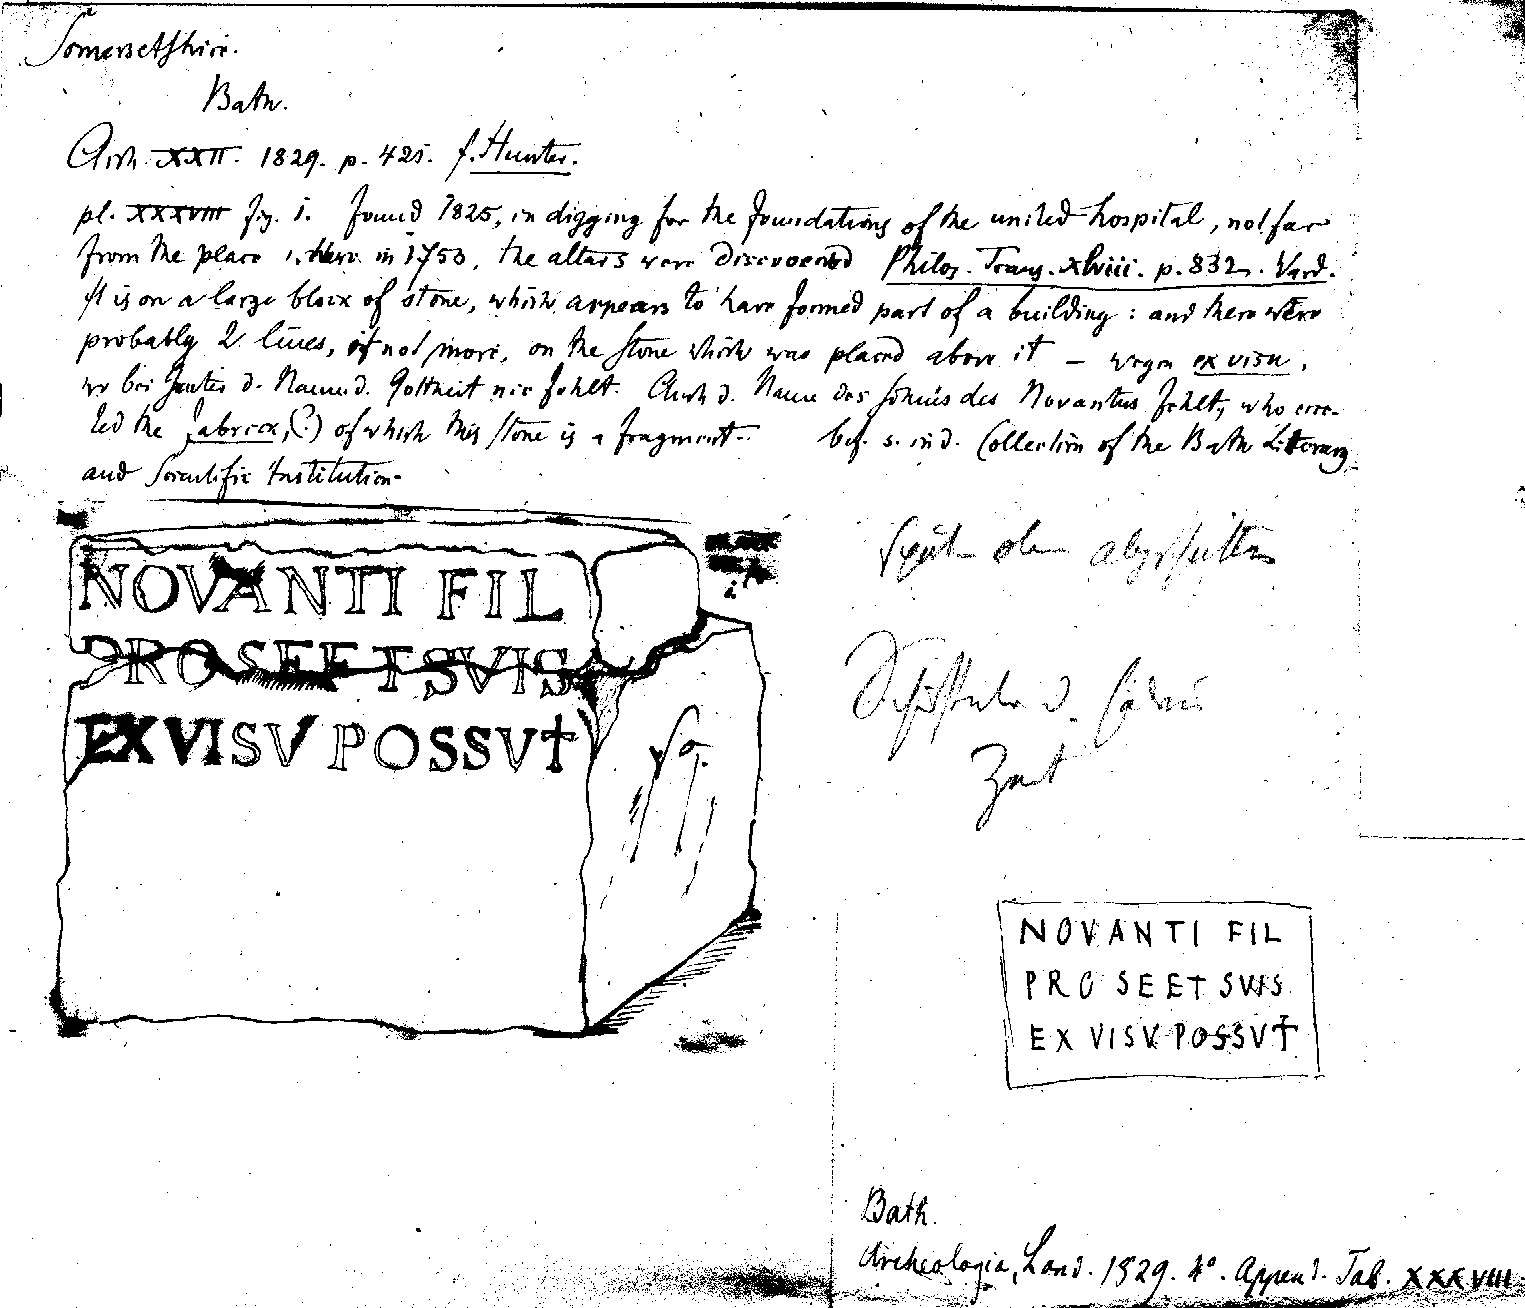 Somersetshire.
Bath.
Arch. XXII. 1829. p. 425. f. Hunter.
pl. XXXVIII fig. 1. found 1825, in digging for the foundations of the united hospital, not far
from the place where in 1753, the altars were discovered Philos. Trans. xlviii. p. 832. Ward.
It is on a large block of stone, which appears to have formed part of a building: and there were
probably 2 lines, if not more, on the stone which was placed above it — wegen ex visu,
wo bei d. Name d. Gottheit nie fehlt. Auch d. Name des Sohnes des Novantus fehlt, who erec-
ted the fabrick, (?) of which this stone is a fragment. bef. s. in d. Collection of the Bath Literary
and Scientific Institution.
NOVANTI FIL
PRO SE ET SVIS
EX VISV POSSVT
Zeit
NOVANTI FIL
PRO SE ET SVIS
EX VISV POSSVT
Bath.
Archeologia, Lond. 1829. 4°. Append. Tab. XXXVIII.